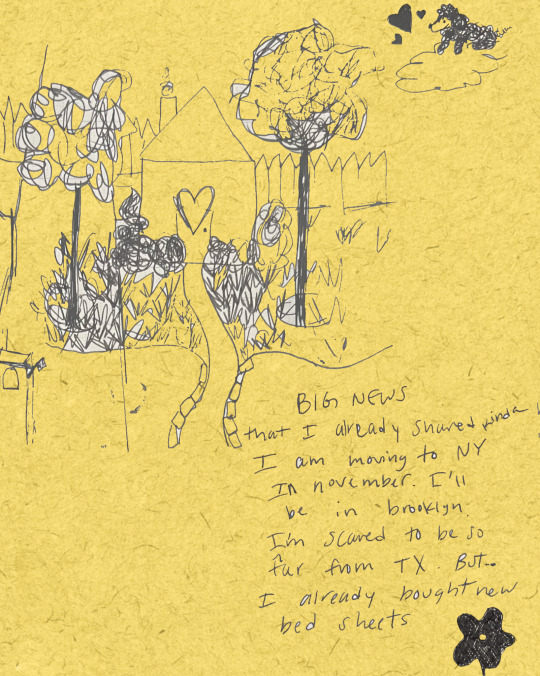 BIG NEWS
that I already shared kinda
I am moving to NY
In november. I'll
be in brooklyn.
I'm scared to be so
far from TX. But..
I already bought new
bed sheets